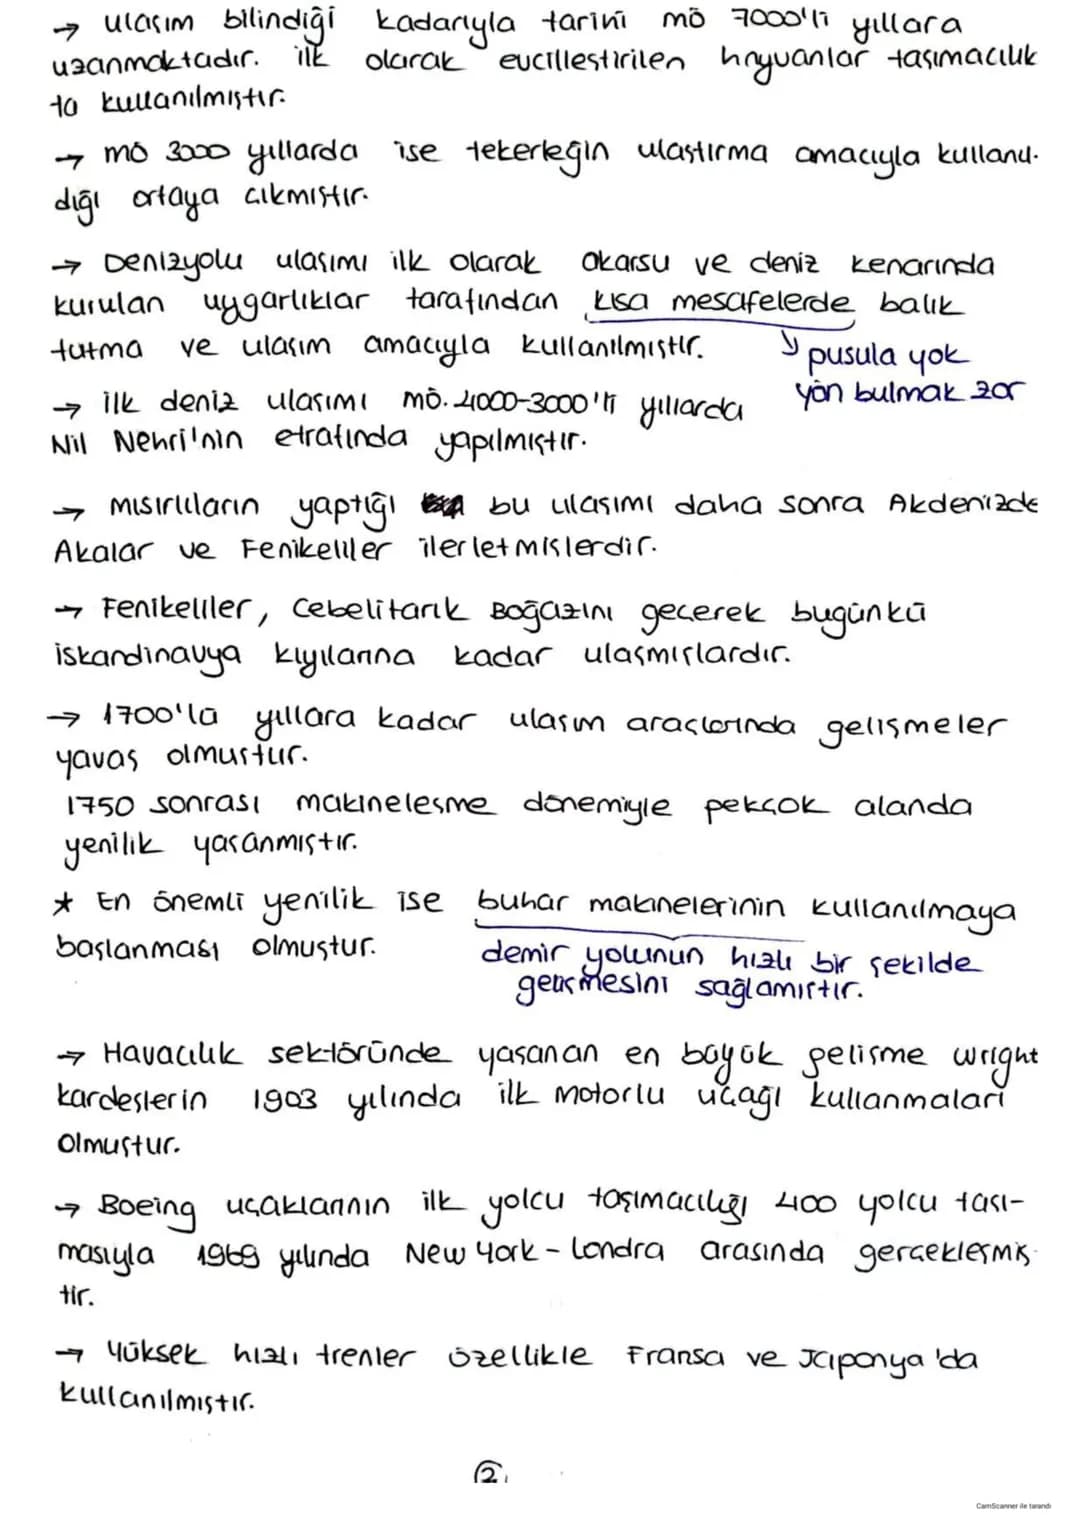 → ulaşım bilindiği kadarıyla tarihi mö 7000'li yıllara
uzanmaktadır. ilk olarak evcilleştirilen hayvanlar taşımacılık
ta kullanılmıştır.
→ mö 3000 yıllarda ise tekerleğin ulaştırma amacıyla kullanıl-
dığı ortaya çıkmıştır.
→ Denizyolu ulaşımı ilk olarak akarsu ve deniz kenarında
kurulan uygarlıklar tarafından kısa mesafelerde balık
tutma ve ulaşım amacıyla kullanılmıştır.
↘ pusula yok
yön bulmak zor
→ ilk deniz ulaşımı mö. 4000-3000'li yıllarda
Nil Nehri'nin etrafında yapılmıştır.
→ mısırlıların yaptığı bu ulaşımı daha sonra Akdenizde
Akalar ve Fenikeliler ilerletmişlerdir.
→ Fenikeliler, Cebelitarık Boğazını geçerek bugünkü
iskandinavya kıyılarına kadar ulaşmışlardır.
→ 1700'lü yıllara kadar ulaşım araçlarında gelişmeler
yavaş olmuştur.
1750 sonrası makineleşme dönemiyle pekçok alanda
yenilik yaşanmıştır.
* En önemli yenilik ise buhar makinelerinin kullanılmaya
başlanması olmuştur.
demir yolunun hızlı bir şekilde
gelişmesini sağlamıştır.
→ Havacılık sektöründe yaşanan en büyük gelişme wright
kardeşlerin 1903 yılında ilk motorlu uçağı kullanmaları
olmuştur.
→ Boeing uçaklarının ilk yolcu taşımacılığı 400 yolcu taşı-
masıyla 1969 yılında New York - Londra arasında gerçekleşmiş-
tir.
→ Yüksek hızlı trenler özellikle Fransa ve Japonya'da
kullanılmıştır.
2
CamScanner ile tarandı